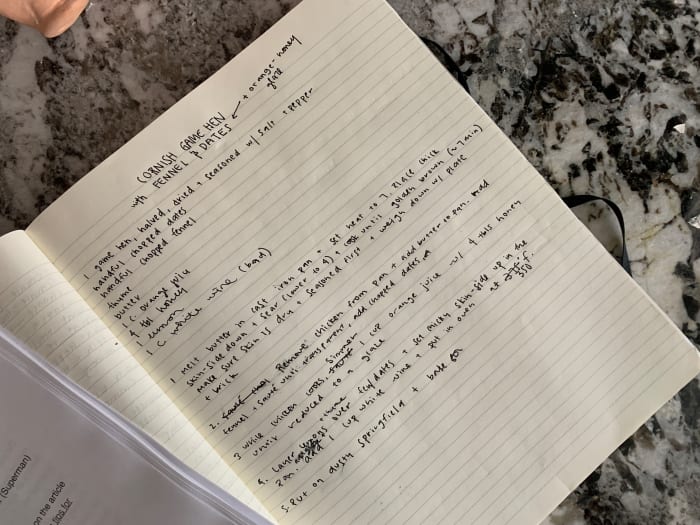 CORNISH GAME HEN
with FENNEL & DATES ← + orange-honey
glaze
1 game hen, halved, dried + seasoned w/ salt + pepper
handful chopped dates
handful chopped fennel
thyme
butter
1 c. orange juice
4 tbl honey
1 lemon
1 c white wine (bad)
1 Melt butter in cast iron pan + set heat to 7. Place chick
skin-side down + sear (lower to 5) cook until golden brown (~7 min)
Make sure skin is dry + seasoned first + weigh down w/ plate
+ brick
2. Remove chicken from pan + add butter to pan. Add
fennel + saute until transparent, add chopped dates
3 While chicken cooks, simmer 1 cup orange juice w/ 4 tbls honey
until reduced to a glaze
4. Layer over fen/dates + set meaty skin-side up in the
pan. Add 1 cup white wine + put in oven at 350°
5. Put on dusty springfield + bake
(Superman)
on the article
tips for